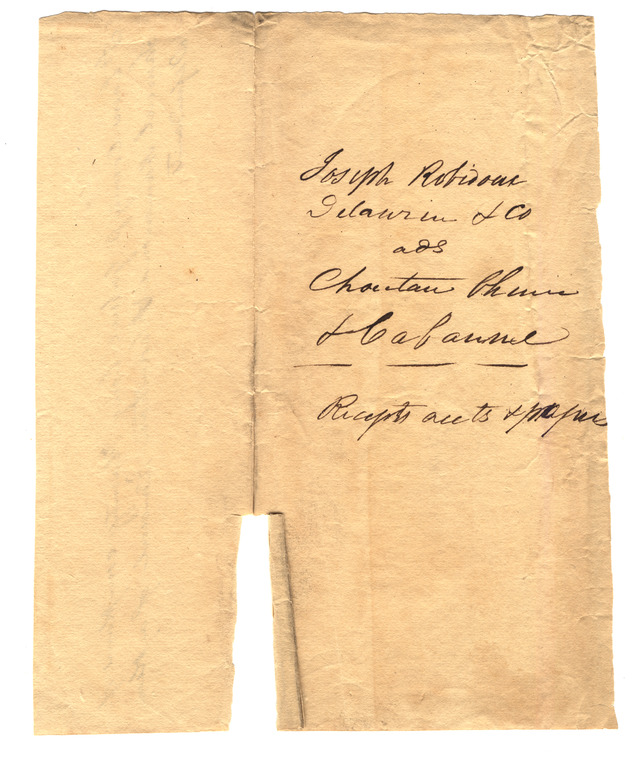 Joseph Robidoux
Delaurier & Co
ads
Choutau Chenie
& Cabanne
Recepts accts & papers